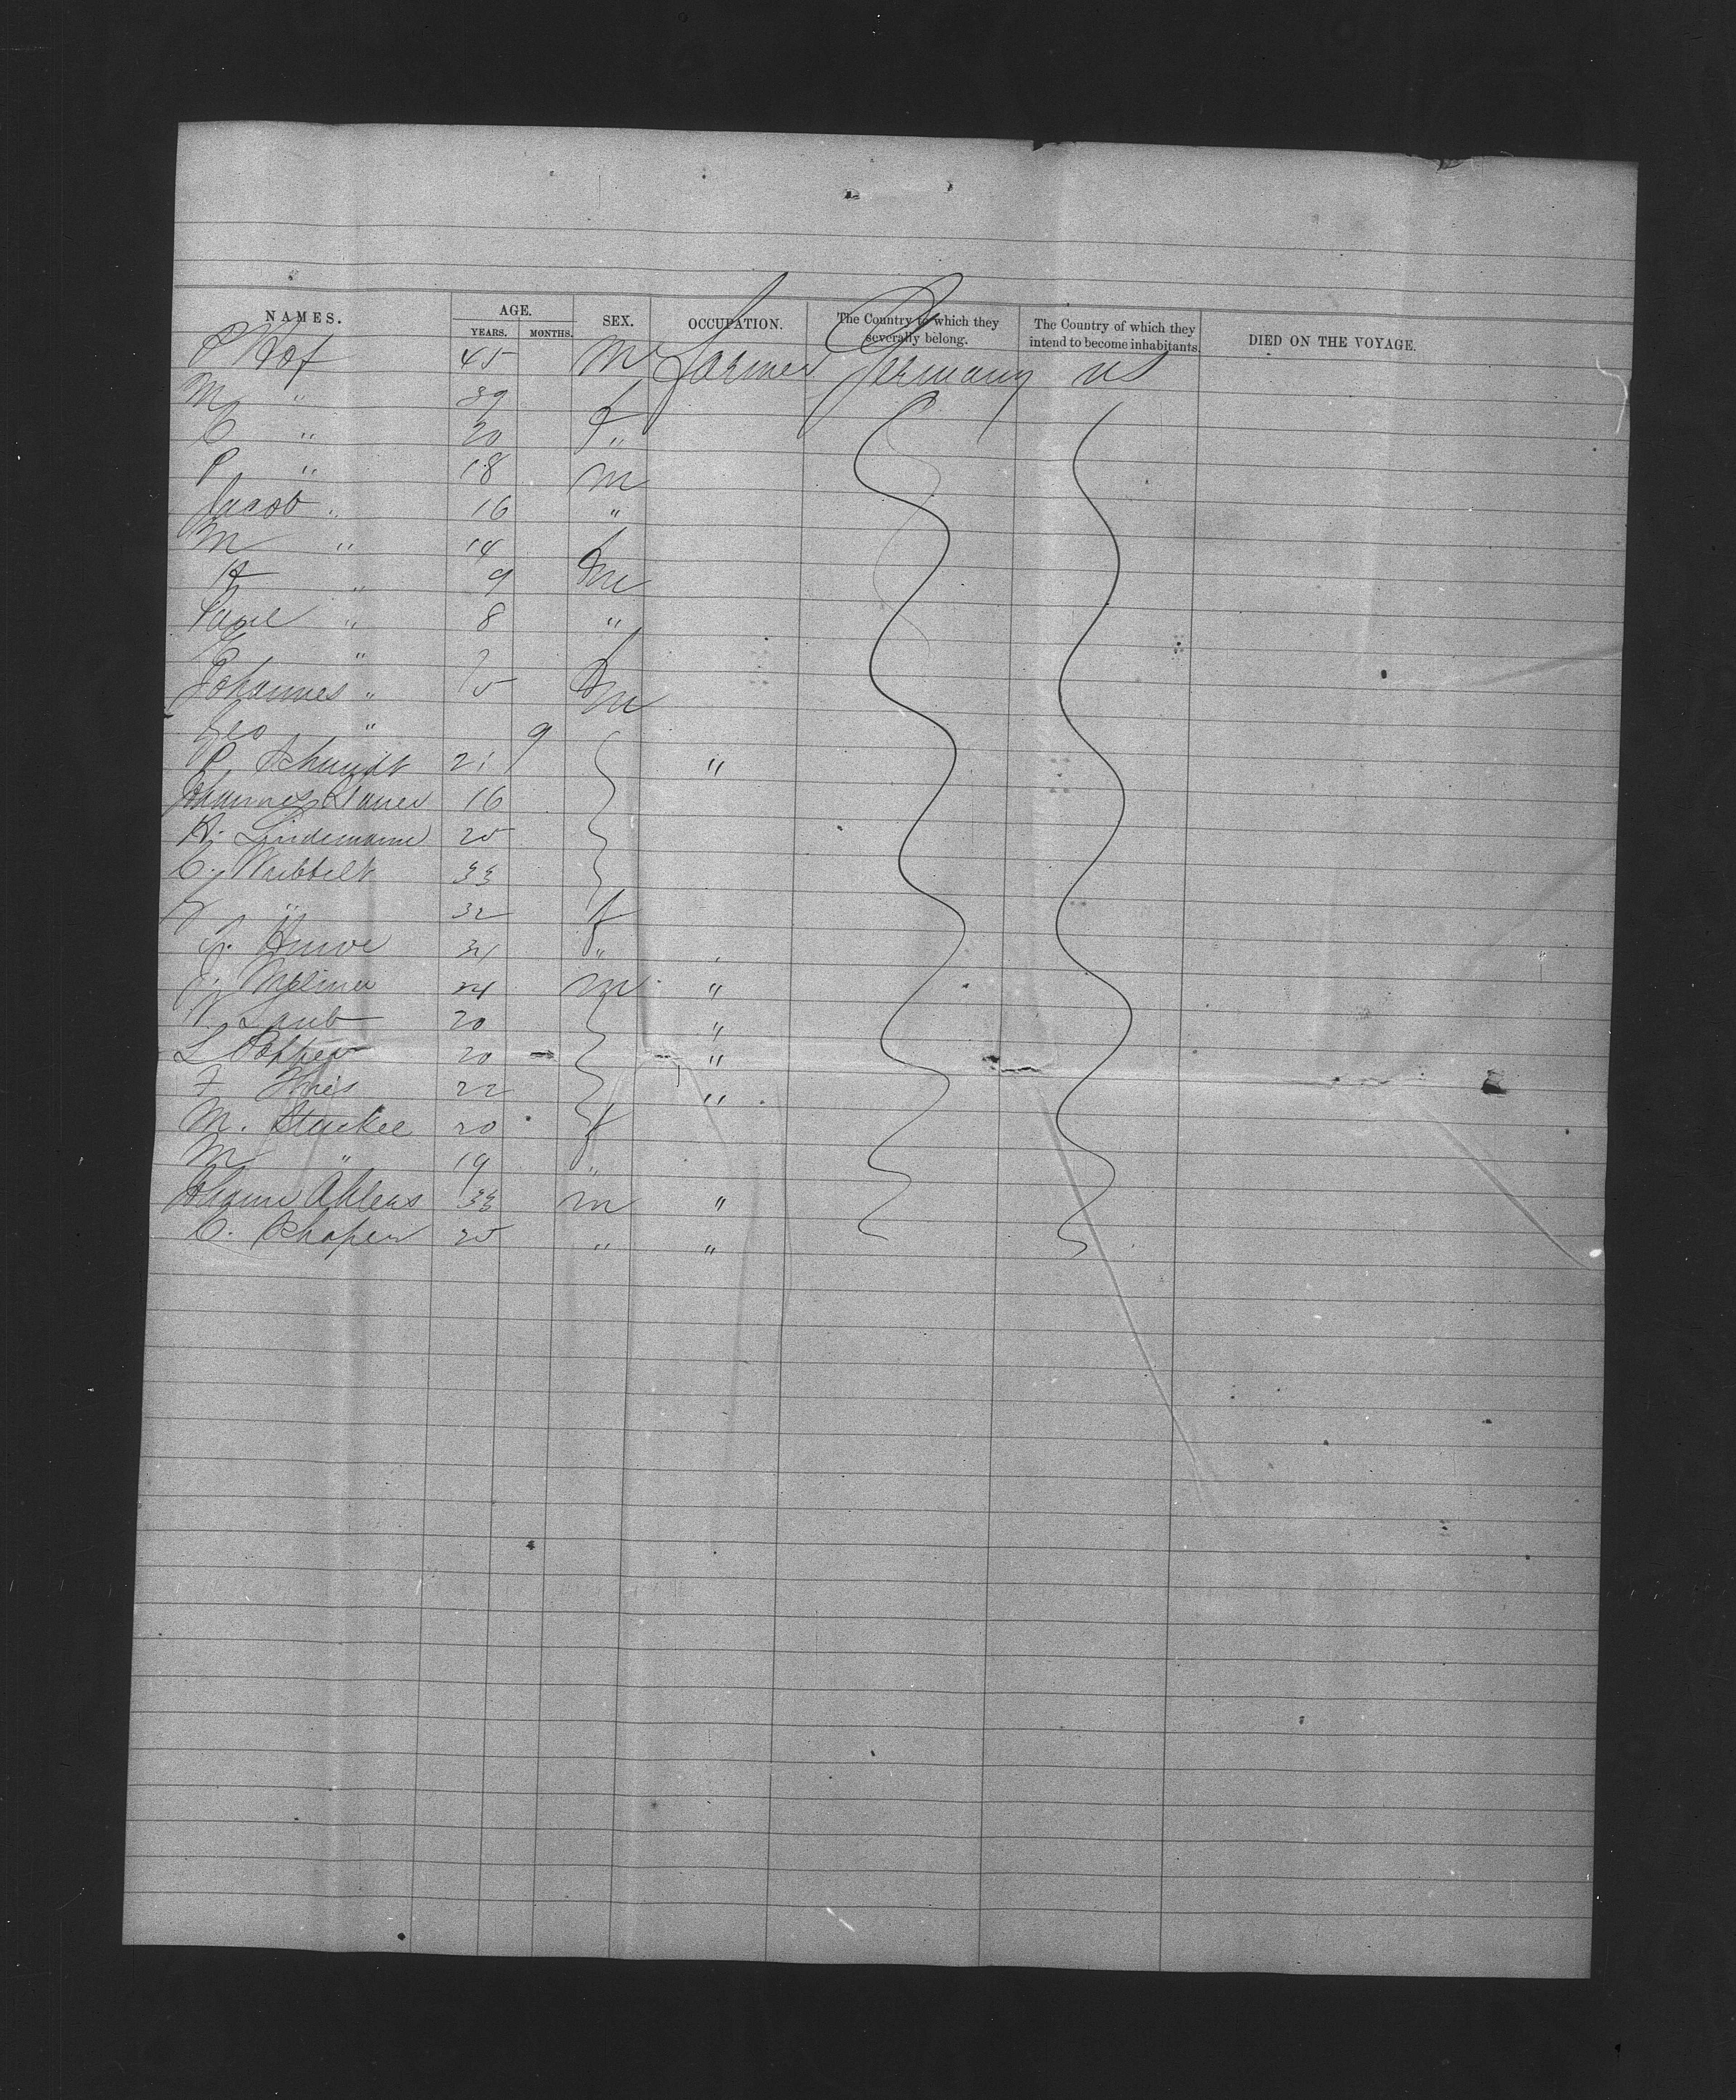 NAMES. AGE. SEX. OCCUPATION. The Country to which they severally belong. The Country of which they intend to become inhabitants. DIED ON THE VOYAGE.
YEARS. MONTHS.
P Hof 45 M Farmer Germany US
M " 39 f
C " 20 "
P " 18 M
Jacob " 16 "
M " 14 f
H " 9 m
Paul " 8 "
" 7 f
Johannes " 5 m
Geo " 9
P Schmidt 21 "
Johannes 16
H. Lindemann 25
C. 33
" 32 f
34 "
J. 24 M "
Laub 20 "
L 20 "
F 22 "
M. Stuckel 20 f
M " 19 "
Johann Ahlers 33 m "
C. Schaper 25 " "